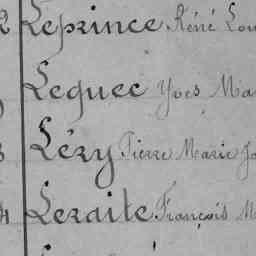 2 Leprince René Lou
Lequec Yves Ma
3 Léry Pierre Marie Jo
4 Leraite François M